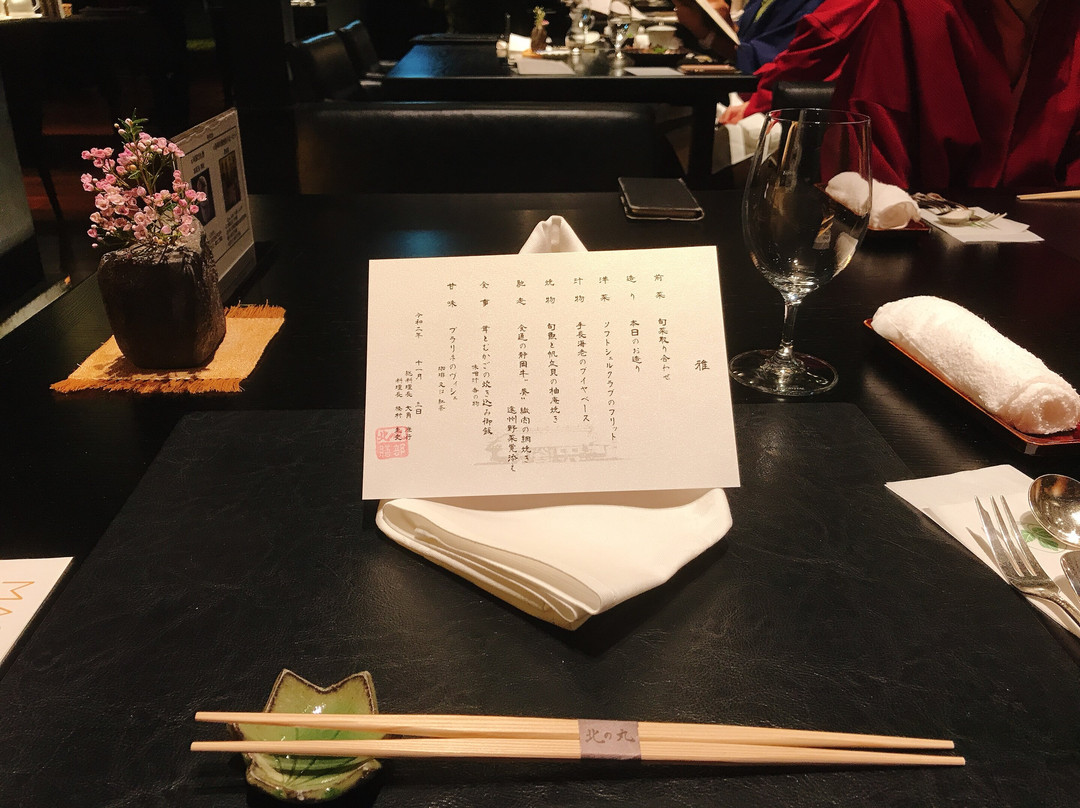 雅
前菜 旬菜取り合わせ
造り 本日のお造り
洋菜 ソフトシェルクラブのフリット
汁物 手長海老のブイヤベース
焼物 旬魚と帆立貝の柚庵焼き
馳走 金選の静岡牛“葵”繊肉の網焼き
遠州野菜
食事 茸とむかごの炊き込み御飯
味噌汁 香の物
甘味 プラリネのヴィシュ
珈琲 又は 紅茶
令和二年 十一月 二日
総料理長
料理長
北の丸
MA